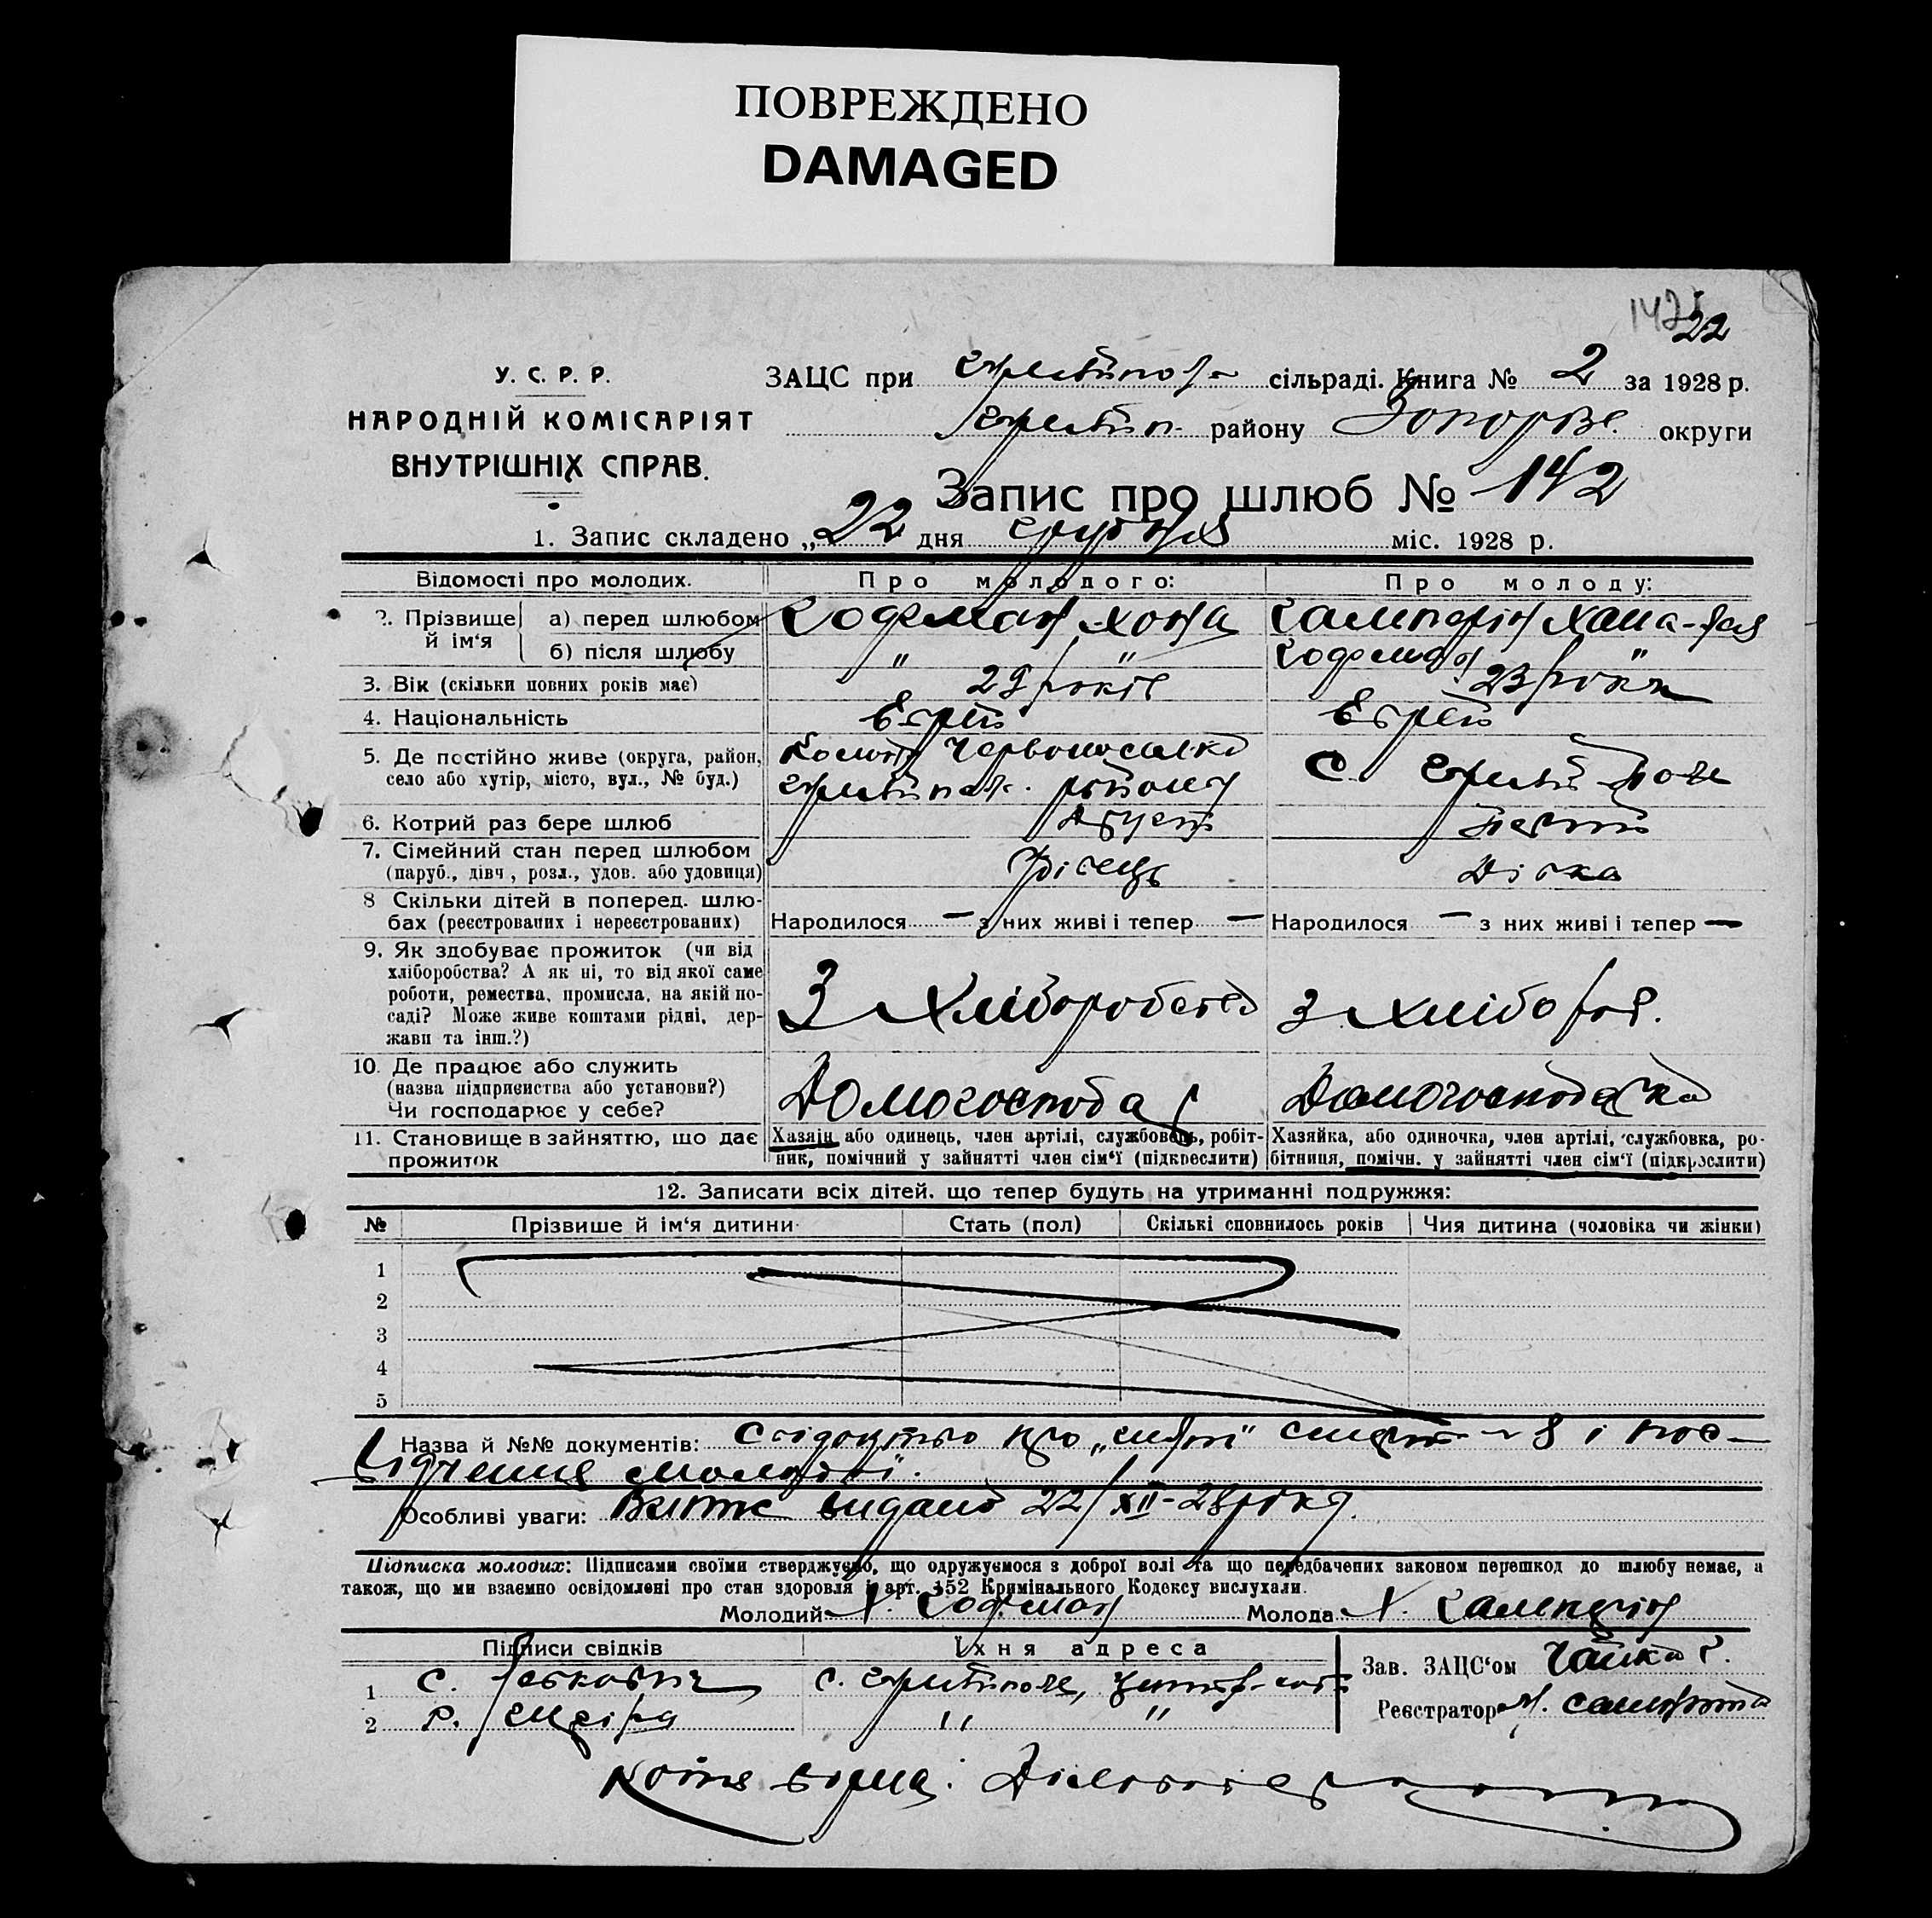 ПОВРЕЖДЕНО
DAMAGED
142
22
У. С. Р. Р.
НАРОДНІЙ КОМІСАРІЯТ
ВНУТРІШНІХ СПРАВ.
ЗАЦС при сільраді. Книга № 2 за 1928 р.
району округи
Запис про шлюб № 142
1. Запис складено „22 дня грудня міс. 1928 р.
Відомості про молодих. Про молодого: Про молоду:
2. Прізвище й ім'я а) перед шлюбом Гофман Хона Гальперін Хана-
б) після шлюбу " " Гофман "
3. Вік (скільки повних років має) 29 років 23 роки
4. Національність Еврей Еврей
5. Де постійно живе (округа, район, село або хутір, місто, вул., № буд.) району С.
6. Котрий раз бере шлюб
7. Сімейний стан перед шлюбом (паруб., дівч., розл., удов. або удовиця) Дівка
8 Скільки дітей в поперед. шлюбах (реєстрованих і нереєстрованих) Народилося — з них живі і тепер — Народилося — з них живі і тепер —
9. Як здобуває прожиток (чи від хліборобства? А як ні, то від якої саме роботи, ремества, промисла, на якій посаді? Може живе коштами рідні, держави та інш.?) З Хліборобства З хлібороб.
10. Де працює або служить (назва підприємства або установи?) Чи господарює у себе? Домогосподар Домогосподарка
11. Становище в зайняттю, що дає прожиток Хазяїн або одинець, член артілі, службовець, робітник, помічний у зайнятті член сім'ї (підкреслити) Хазяйка, або одиночка, член артілі, службовка, робітниця, помічн. у зайнятті член сім'ї (підкреслити)
12. Записати всіх дітей, що тепер будуть на утриманні подружжя:
№ Прізвище й ім'я дитини Стать (пол) Скількі сповнилось років Чия дитина (чоловіка чи жінки)
1
2
3
4
5
Назва й №№ документів: Свідоцтво про і пос-
відчення молодої.
Особливі уваги: Витяг видано 22/XII-28 року.
Підписка молодих: Підписами своїми стверджуємо, що одружуємося з доброї волі та що передбачених законом перешкод до шлюбу немає, а
також, що ми взаємно освідомлені про стан здоровля і арт. 152 Кримінального Кодексу вислухали.
Молодий Х. Гофман Молода Х. Гальперін
Підписи свідків Їхня адреса
1 С. С.
Зав. ЗАЦС'ом Чайка
2 Р. " "
Реєстратор
Копія вірна: Діловод